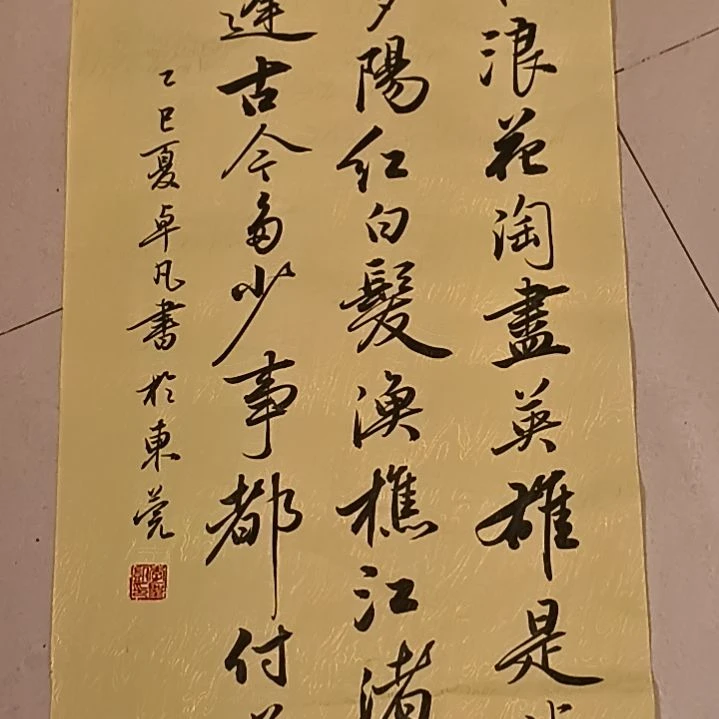 浪花淘盡英雄是
夕陽紅白髮漁樵江渚
逢古今多少事都付
乙巳夏卓凡書於東莞